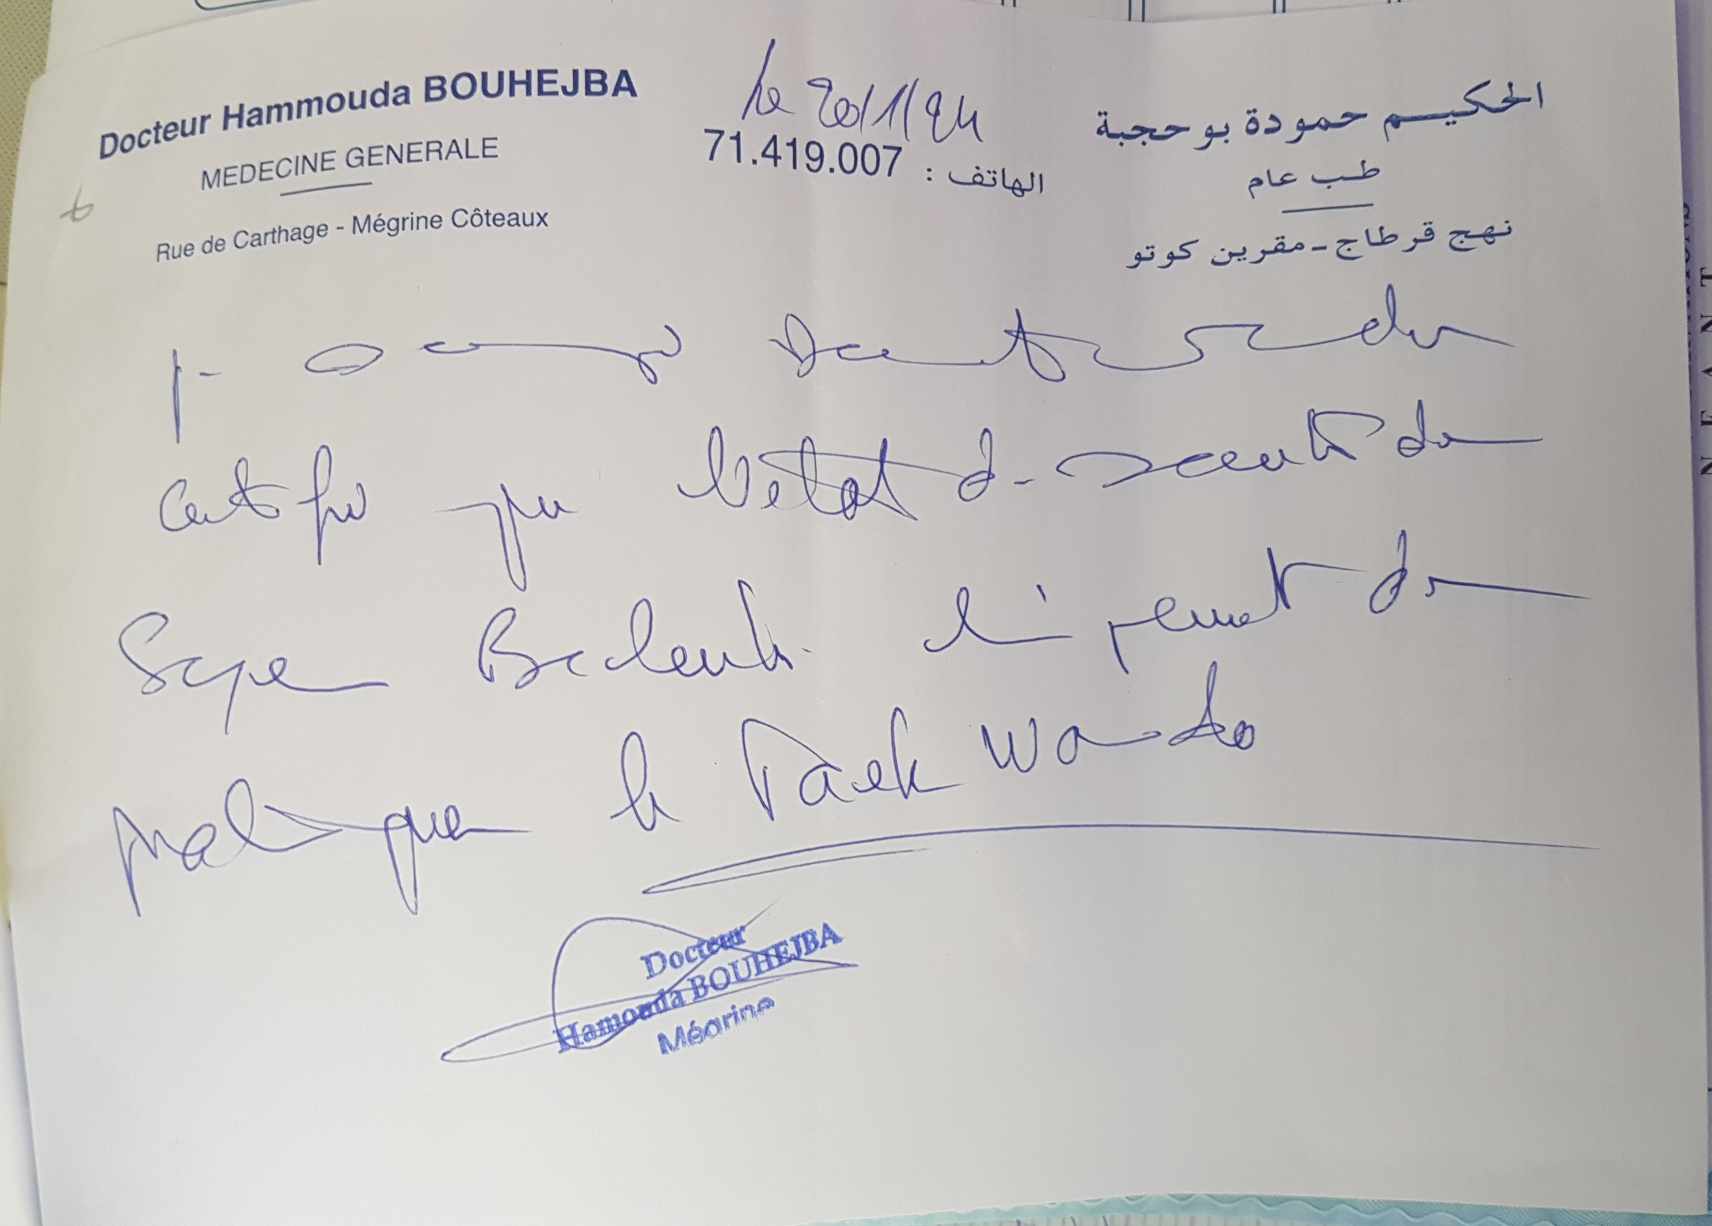 Docteur Hammouda BOUHEJBA
MEDECINE GENERALE
Rue de Carthage - Mégrine Côteaux
le 20/1/24
71.419.007 : الهاتف
الحكيم حمودة بوحجبة
طب عام
نهج قرطاج - مقرين كوتو
Je
certifie que l'état de santé de
lui permet de
pratiquer le Taek Wando
Docteur
Hamouda BOUHEJBA
Mégrine
NEANT